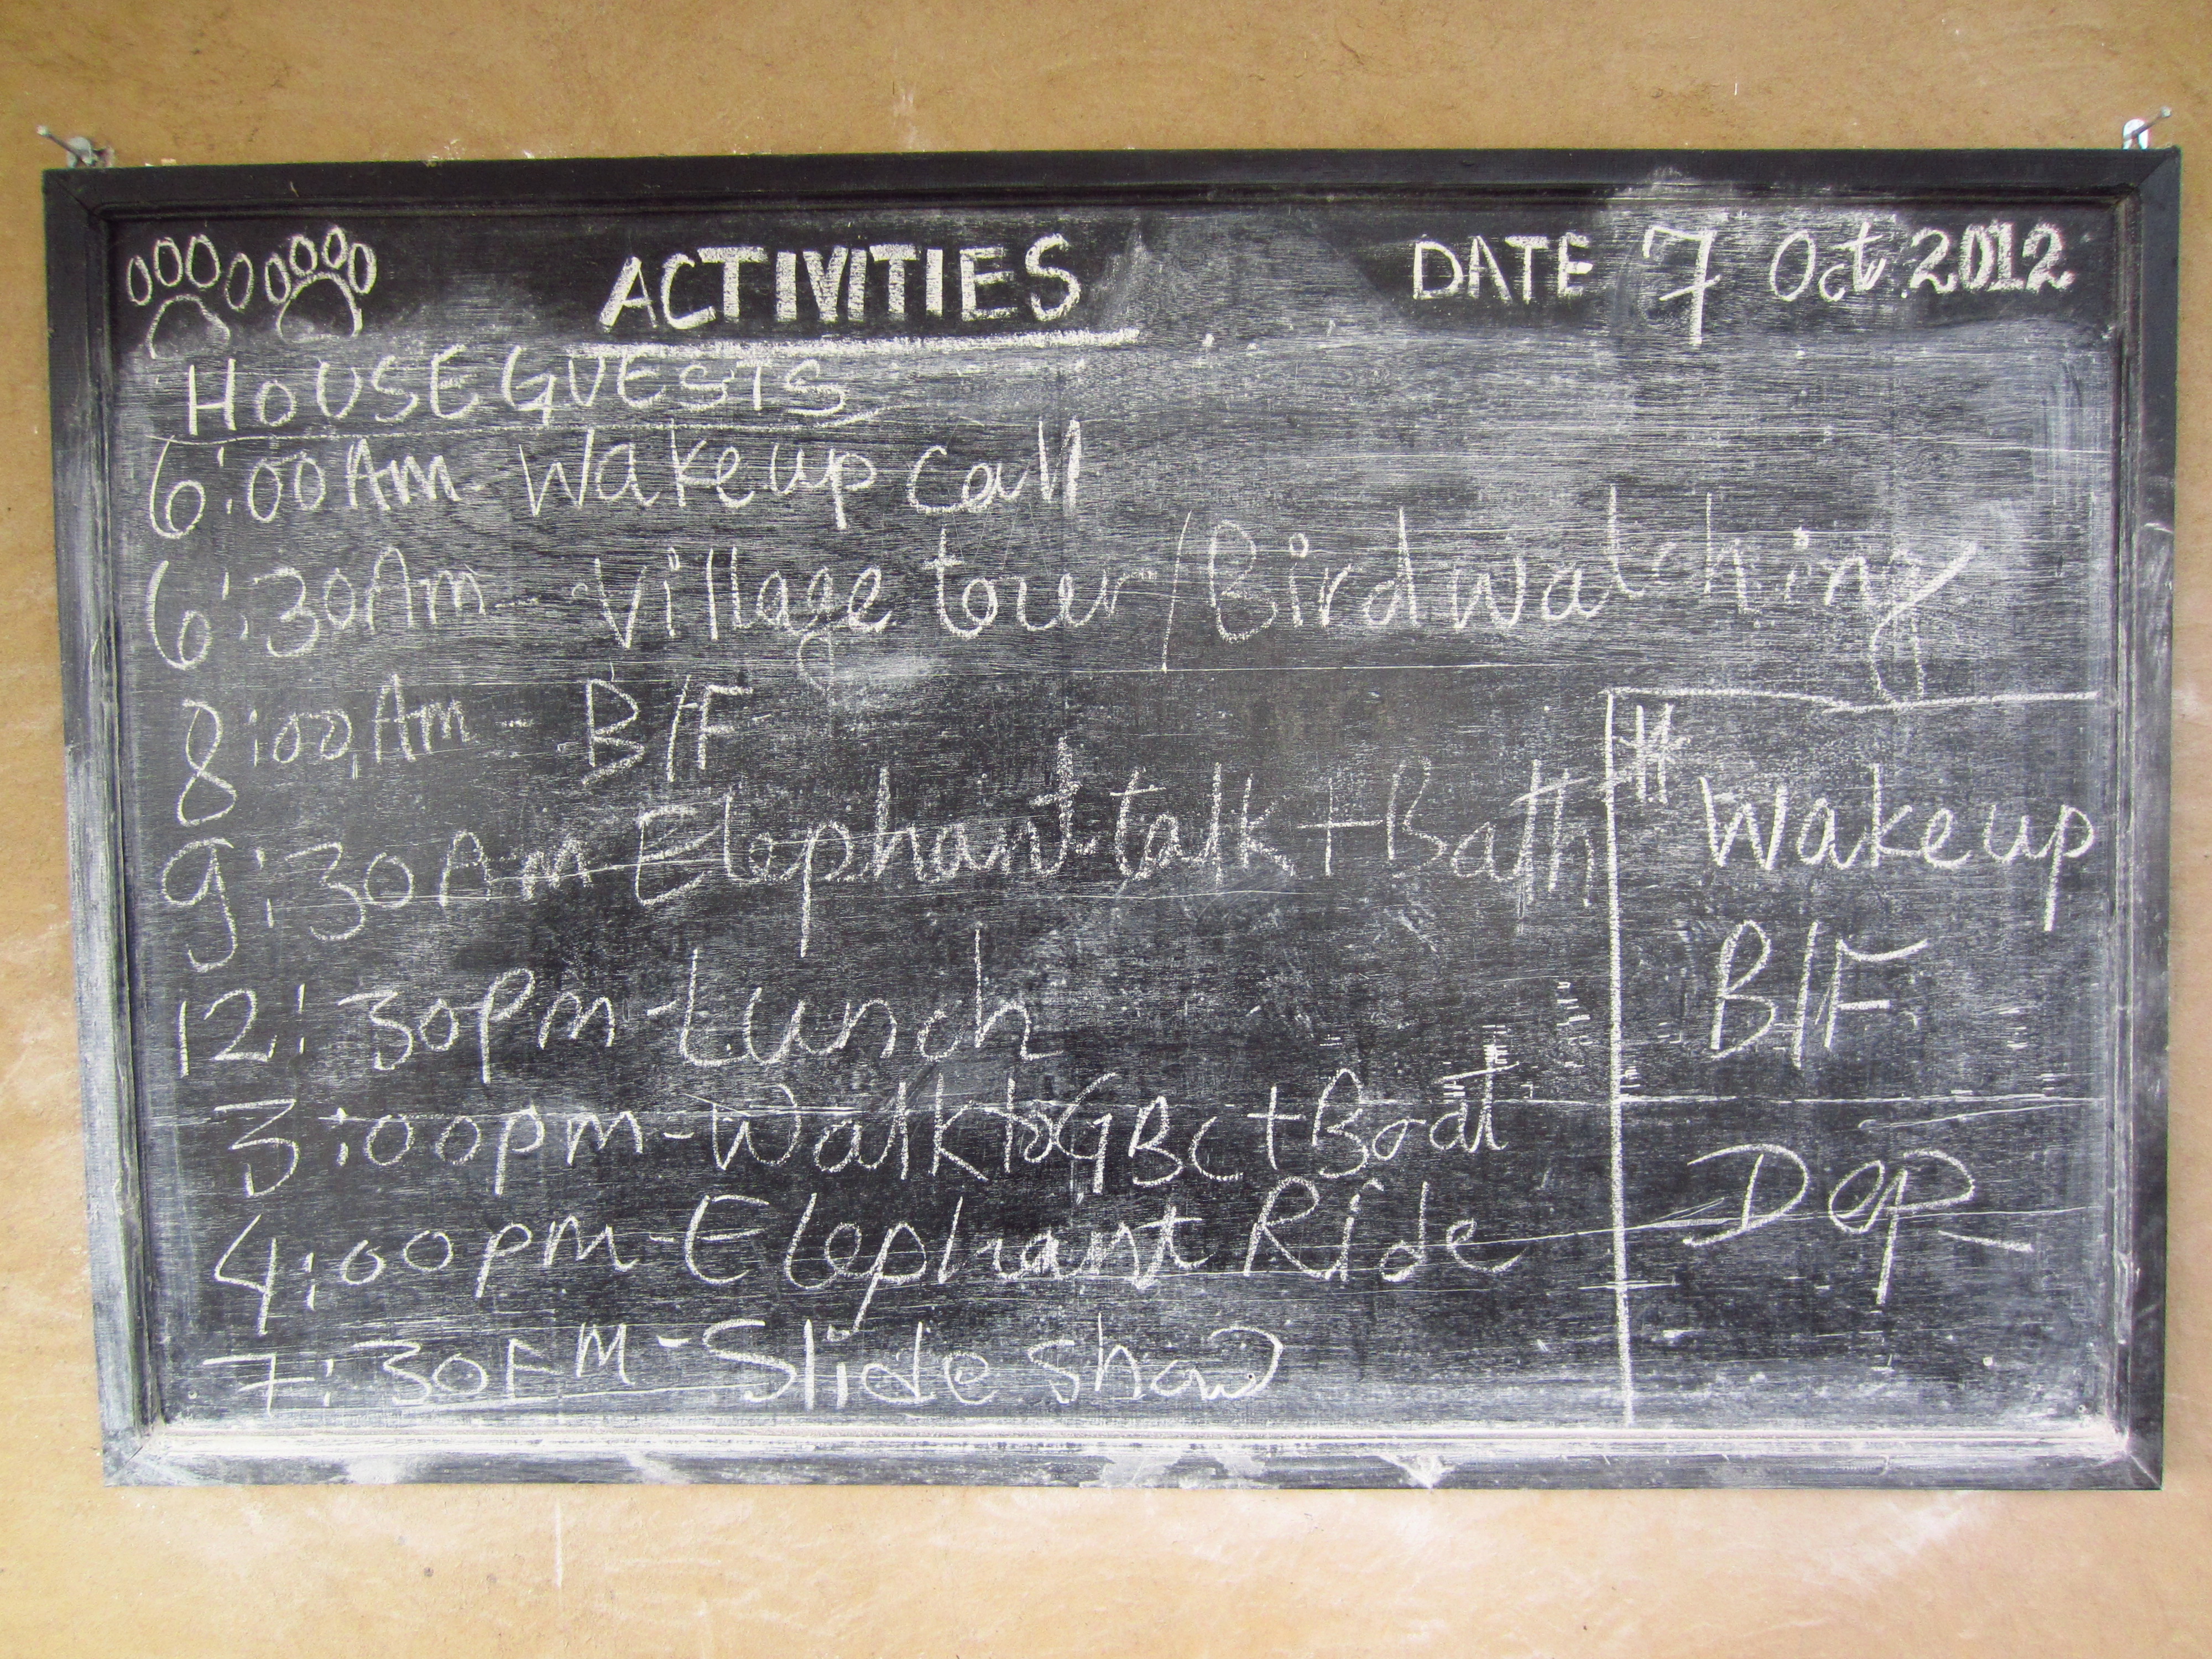 ACTIVITIES DATE 7 Oct. 2012
HOUSE GUESTS
6:00 Am - Wakeup call
6:30 Am - Village tour / Birdwatching
8:00 Am - B/F
9:30 Am Elephant talk + Bath
12:30pm - Lunch
3:00pm - Walk to GBC + Boat
4:00pm - Elephant Ride
7:30PM - Slide show
Wakeup
B/F
Dep